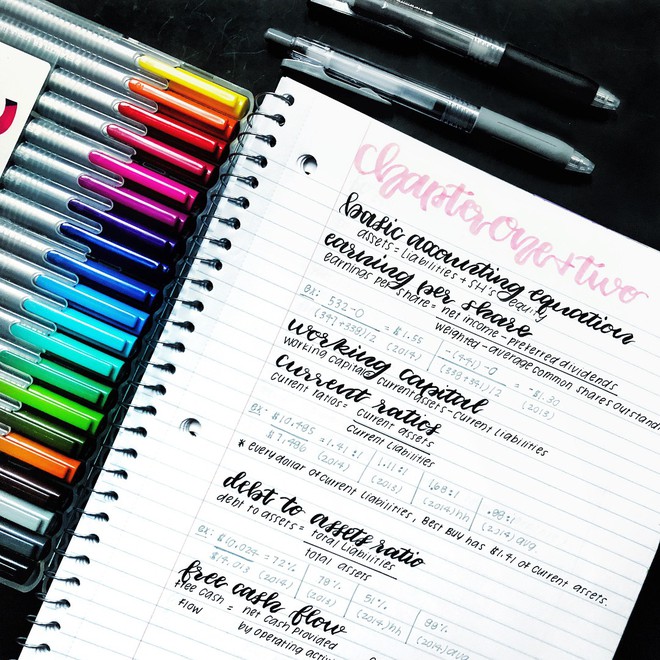 chapter one + two
basic accounting equation
assets = liabilities + SH's equity
earning per share
earnings per share = net income - preferred dividends
weighted - average common shares outstand
ex: 532-0 = $1.55 -(441)-0 = -$1.30
(349+338)/2 (2014) (339+341)/2 (2013)
working capital
working capital = current assets - current liabilities
current ratios
current ratios = current assets
current liabilities
ex: $10,485 = 1.41:1 1.11:1 .68:1 .88:1
$7,436 (2014) (2013) (2014)hh (2014)avg
* every dollar of current liabilities, Best Buy has $1.41 of current assets.
debt to assets ratio
debt to assets = total liabilities
total assets
ex: $10,024 = 72% 78% 51% 88%
$14,013 (2014) (2013) (2014)hh (2014)avg
free cash flow
free cash flow = net cash provided
by operating